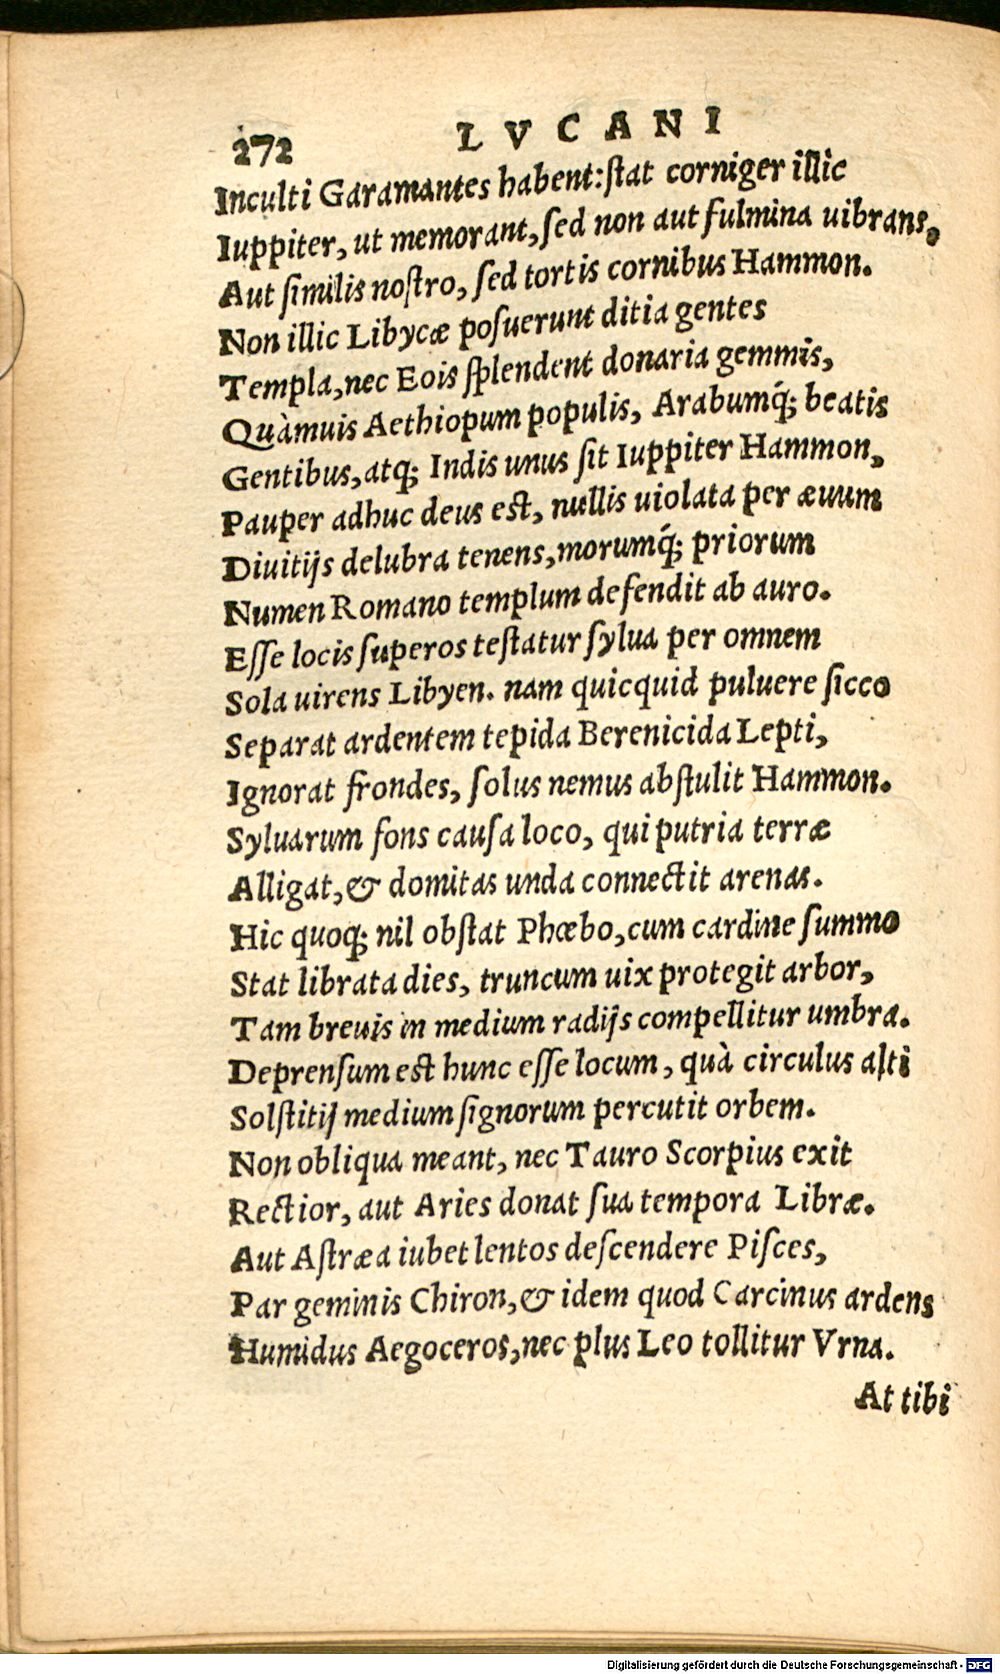 272 LVCANI
Inculti Garamantes habent: ſtat corniger illic
Iuppiter, ut memorant, ſed non aut fulmina uibrans,
Aut ſimilis noſtro, ſed tortis cornibus Hammon.
Non illic Libycæ poſuerunt ditia gentes
Templa, nec Eois ſplendent donaria gemmis,
Quàmuis Aethiopum populis, Arabumq́; beatis
Gentibus, atq; Indis unus ſit Iuppiter Hammon,
Pauper adhuc deus eſt, nullis uiolata per æuum
Diuitijs delubra tenens, morumq́; priorum
Numen Romano templum defendit ab auro.
Eſſe locis ſuperos teſtatur ſylua per omnem
Sola uirens Libyen. nam quicquid puluere ſicco
Separat ardentem tepida Berenicida Lepti,
Ignorat frondes, ſolus nemus abſtulit Hammon.
Syluarum fons cauſa loco, qui putria terræ
Alligat, & domitas unda connectit arenas.
Hic quoq; nil obſtat Phœbo, cum cardine ſummo
Stat librata dies, truncum uix protegit arbor,
Tam breuis in medium radijs compellitur umbra.
Deprenſum eſt hunc eſſe locum, quà circulus alti
Solſtitij medium ſignorum percutit orbem.
Non obliqua meant, nec Tauro Scorpius exit
Rectior, aut Aries donat ſua tempora Libræ.
Aut Aſtræa iubet lentos deſcendere Piſces,
Par geminis Chiron, & idem quod Carcinus ardens
Humidus Aegoceros, nec plus Leo tollitur Vrna.
At tibi
Digitalisierung gefördert durch die Deutsche Forschungsgemeinschaft - DFG